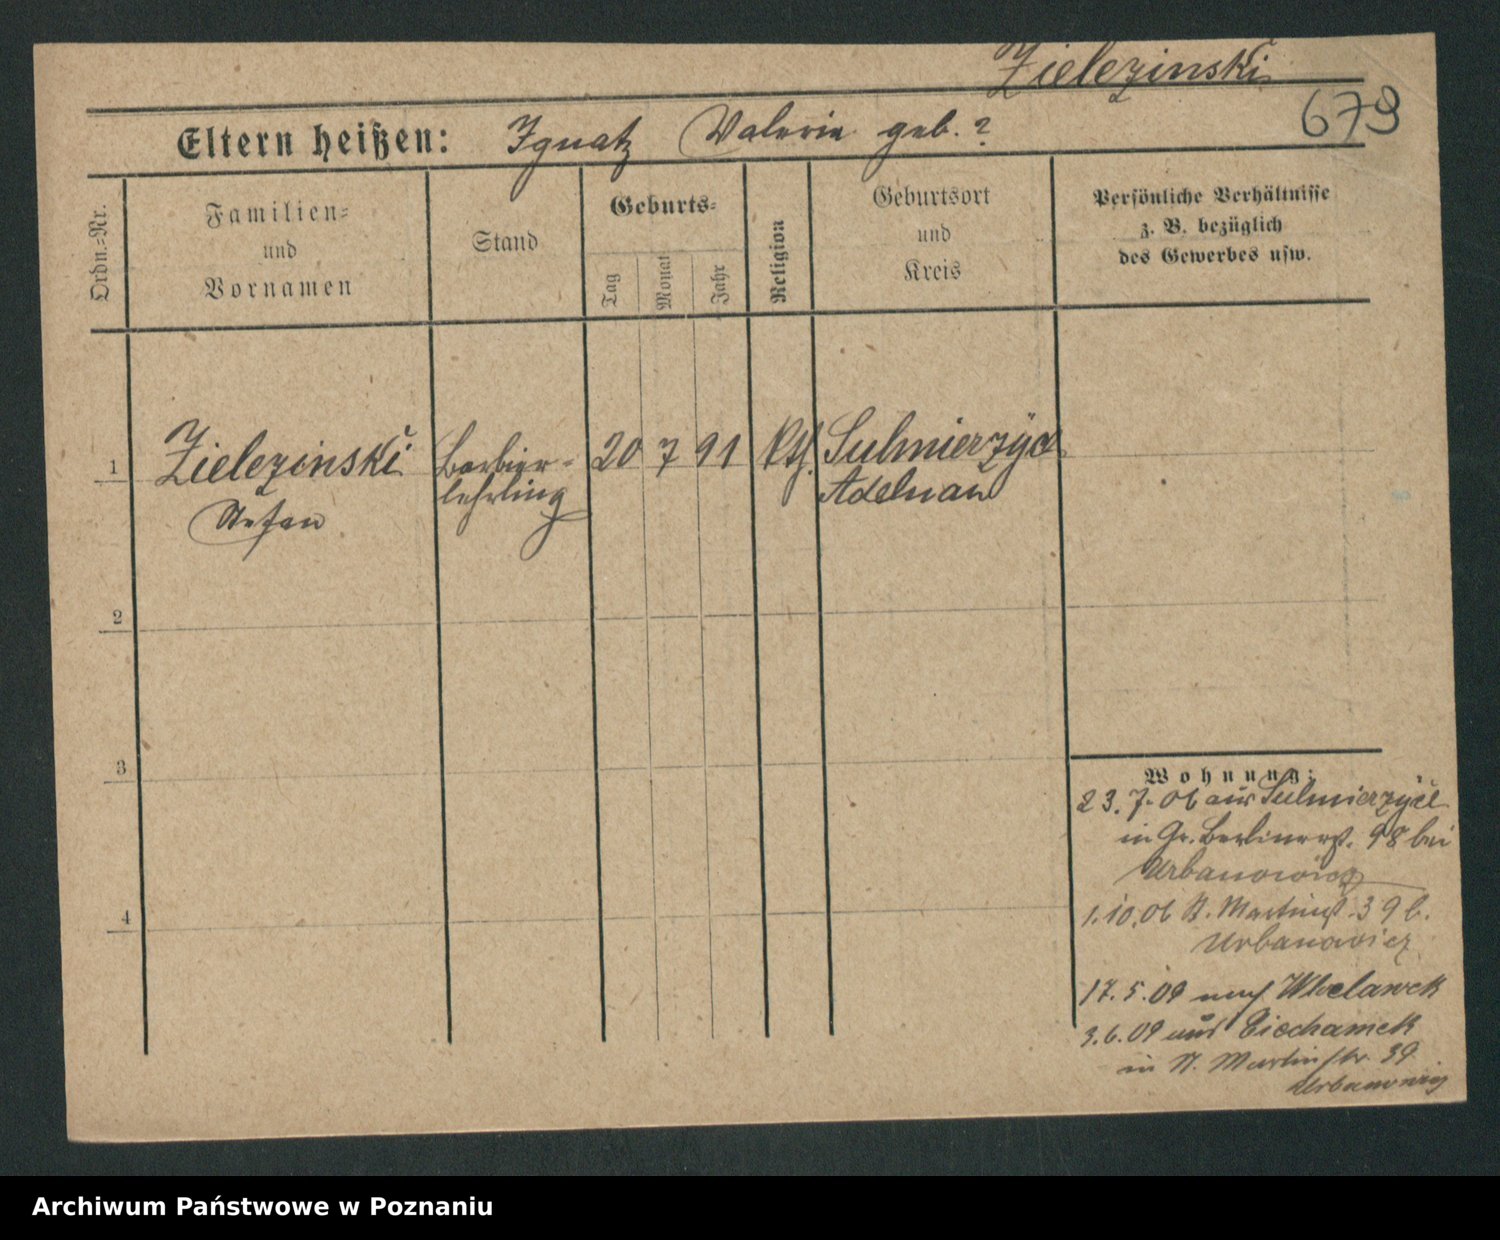 Zielezinski
679
Eltern heißen: Ignatz Valerie geb. ?
Ordn.-Nr.
Familien-
und
Vornamen
Stand
Geburts-
Tag
Monat
Jahr
Religion
Geburtsort
und
Kreis
Persönliche Verhältnisse
z. B. bezüglich
des Gewerbes usw.
1
Zielezinski
Stefan
Barbier-
lehrling
20 7 91
kth.
Sulmierzÿce
Adelnau
2
3
4
Wohnung:
23.7.06 aus Sulmierzÿce
in Gr. Berlinerst. 98 bei
Urbanowicz
1.10.06 St. Martinst. 39 b.
Urbanowicz
17.5.09 nach
3.6.09 aus
in St. Martinstr. 39
Urbanowicz
Archiwum Państwowe w Poznaniu